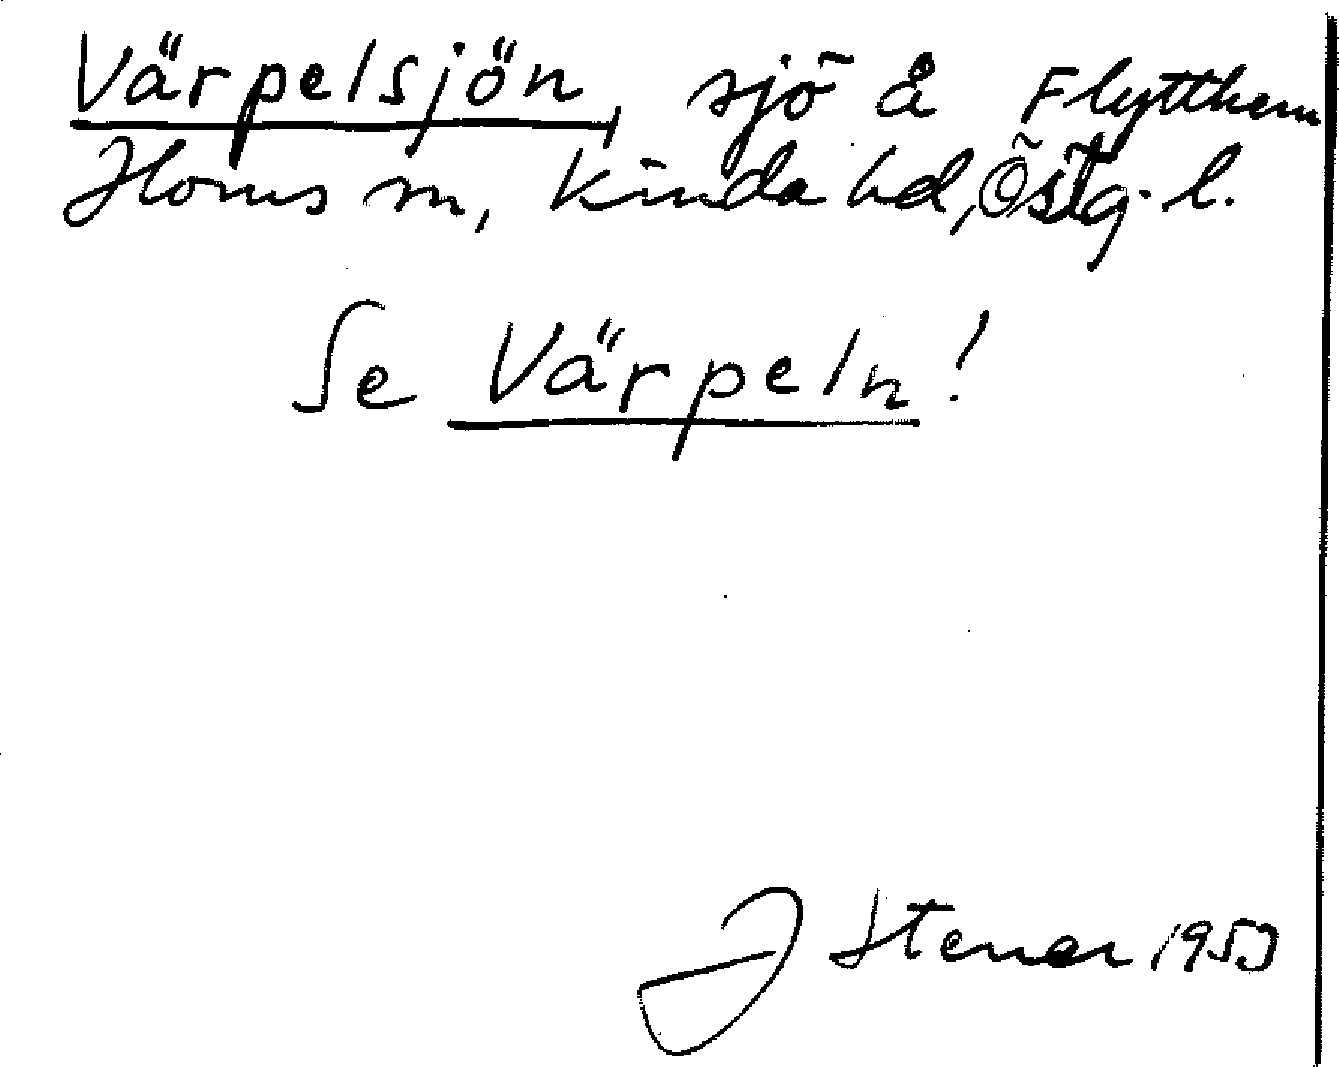 Värpelsjön, sjö å Flytthem
Horns sn, Kinda hd, Östg. l.
Se Värpeln!
J Stenar 1953